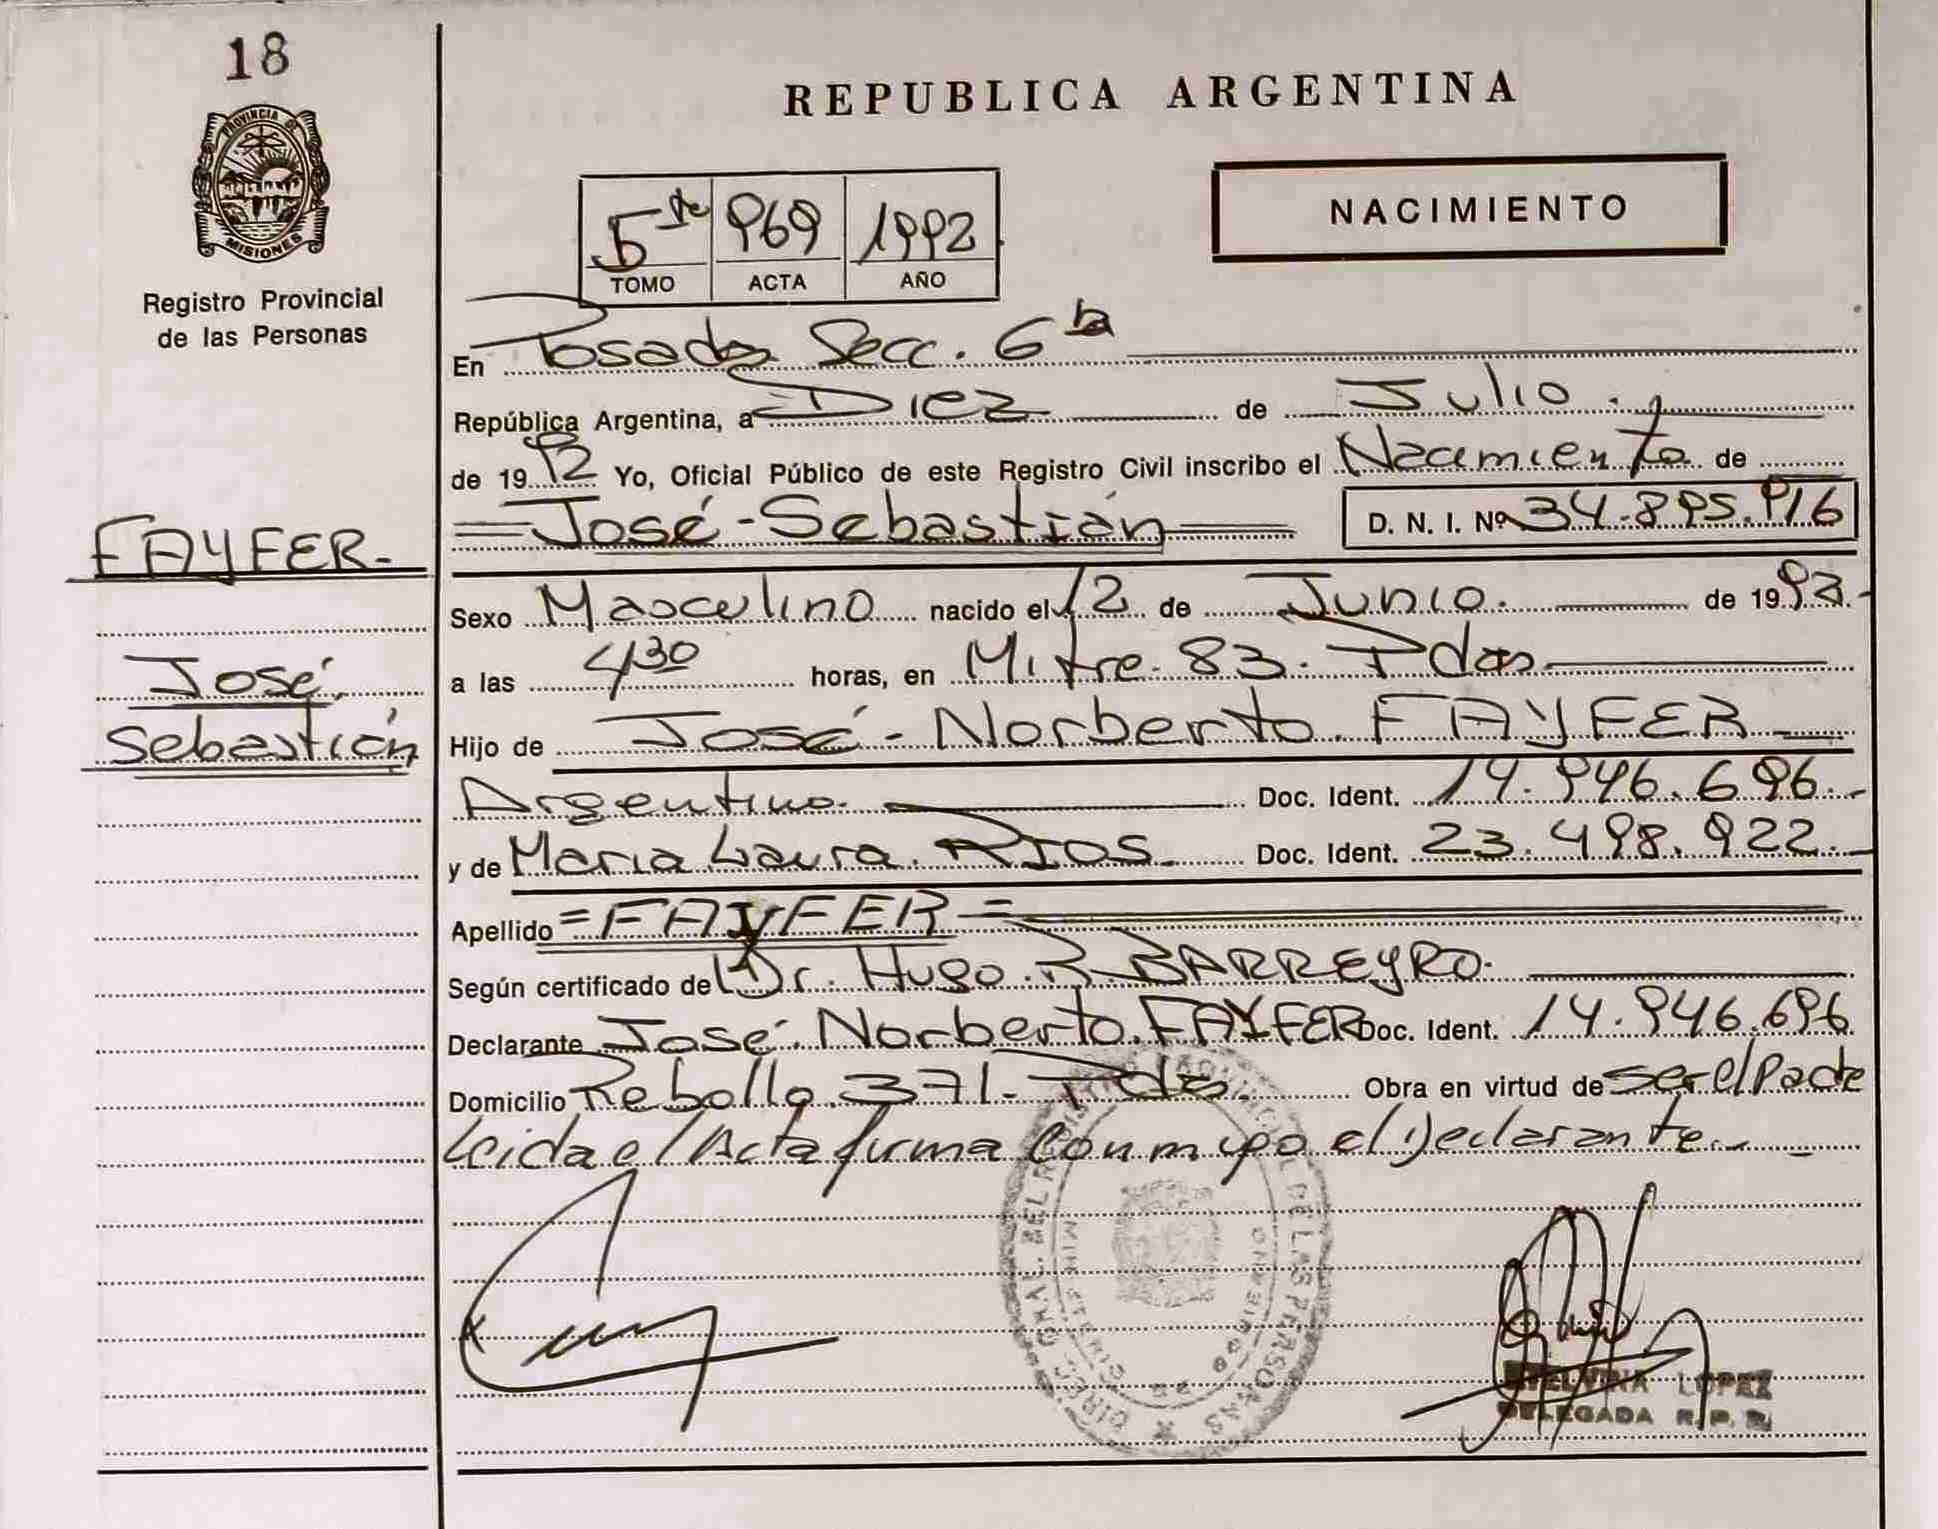 18
PROVINCIA DE
MISIONES
Registro Provincial
de las Personas
FAYFER.
José
Sebastián
REPUBLICA ARGENTINA
5to 969 1992
TOMO ACTA AÑO
NACIMIENTO
En Posadas Secc. 6ta
República Argentina, a Diez de Julio.
de 1992 Yo, Oficial Público de este Registro Civil inscribo el Nacimiento de
=José-Sebastián= D. N. I. Nº 34.895.916
Sexo Masculino nacido el 12 de Junio. de 1992.-
a las 4,30 horas, en Mitre 83. Pdas.
Hijo de José-Norberto FAYFER
Argentino. Doc. Ident. 14.946.696.-
y de María Laura RIOS. Doc. Ident. 23.498.922.-
Apellido =FAYFER=
Según certificado de Dr. Hugo R. BARREYRO.
Declarante José Norberto FAYFER Doc. Ident. 14.946.696
Domicilio Rebollo 371. Pdas. Obra en virtud de ser el Padre
Leida el Acta firma conmigo el Declarante.-
DIREC. GRAL. DEL REGISTRO PROVINCIAL DE LAS PERSONAS
LOPEZ
DELEGADA R. P. P.